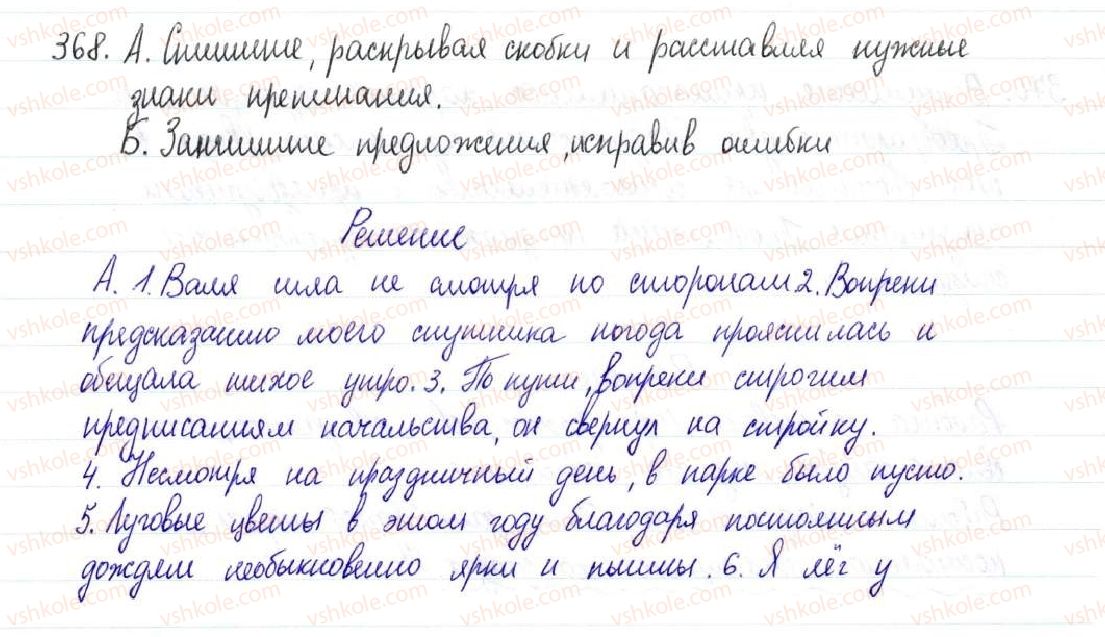 368. А. Спишите, раскрывая скобки и расставляя нужные
знаки препинания.
Б. Запишите предложения, исправив ошибки
Решение
А. 1. Валя шла не смотря по сторонам 2. Вопреки
предсказанию моего спутника погода прояснилась и
обещала тихое утро. 3. По пути, вопреки строгим
предписаниям начальства, он свернул на стройку.
4. Несмотря на праздничный день, в парке было пусто.
5. Луговые цветы в этом году благодаря постоянным
дождям необыкновенно ярки и пышны. 6. Я лёг у